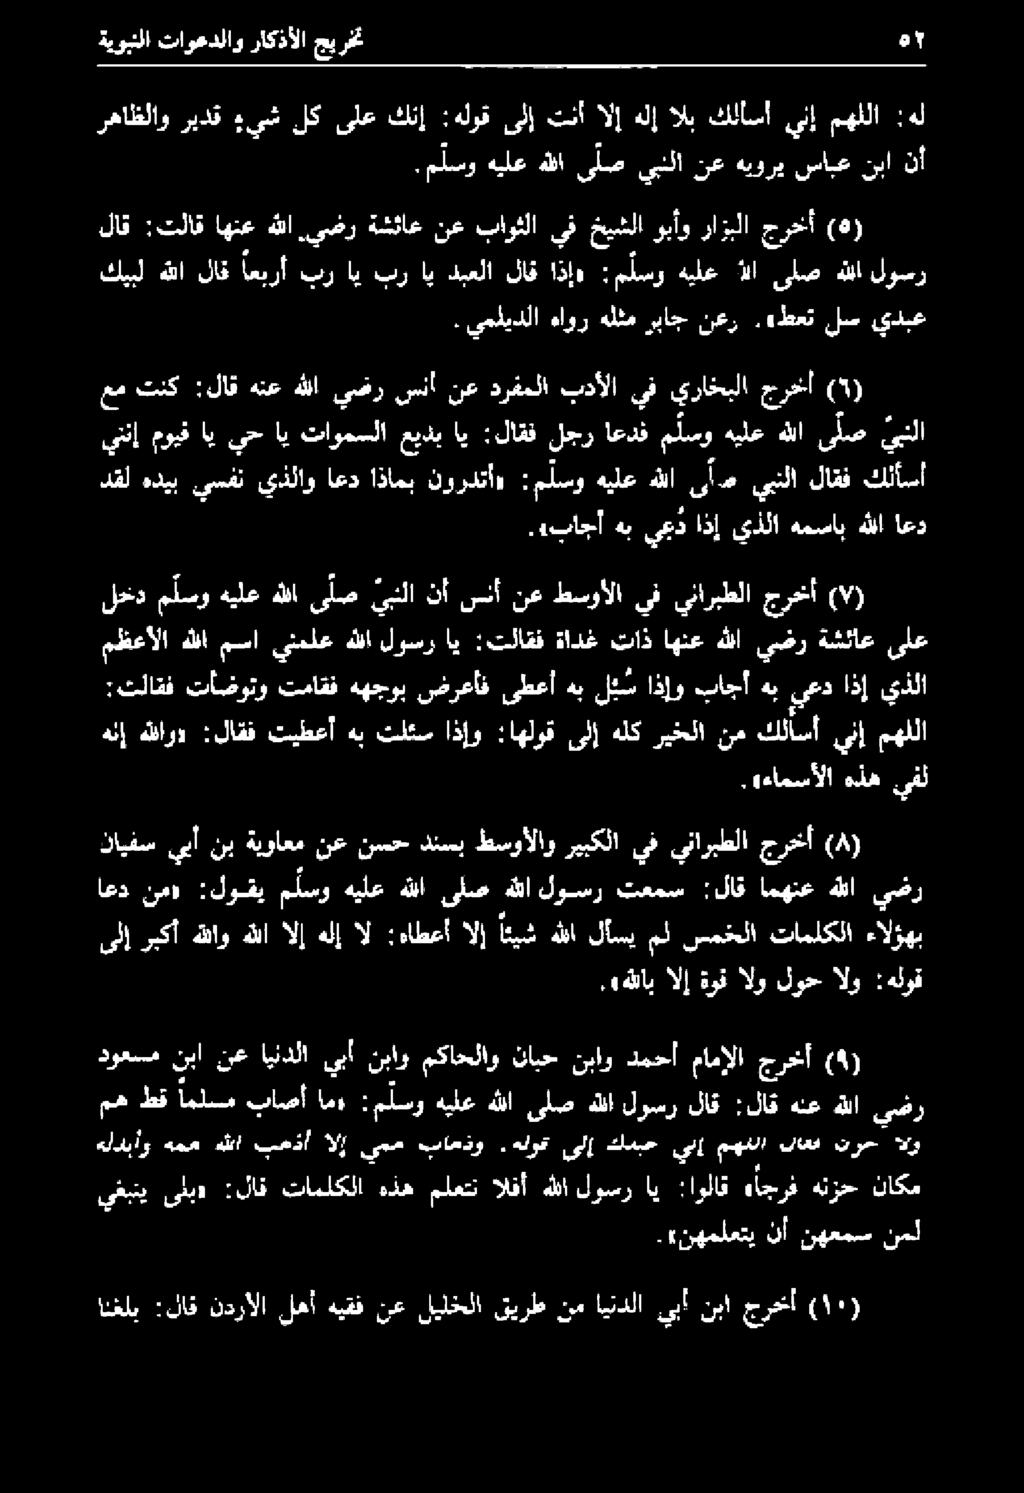 ٥٢ تخريج الأذكار والدعوات النبوية
له: اللهم إني أسألك بلا إله إلا أنت إلى قوله: إنك على كل شيء قدير والظاهر
أن ابن عباس يرويه عن النبي صلّى الله عليه وسلّم.
(٥) أخرج البزار وأبو الشيخ في الثواب عن عائشة رضي الله عنها قالت: قال
رسول الله صلى الله عليه وسلّم: «إذا قال العبد يا رب يا رب أربعاً قال الله لبيك
عبدي سل تعط». وعن جابر مثله رواه الديلمي.
(٦) أخرج البخاري في الأدب المفرد عن أنس رضي الله عنه قال: كنت مع
النبيّ صلّى الله عليه وسلّم فدعا رجل فقال: يا بديع السموات يا حي يا قيوم إنني
أسألك فقال النبي صلّى الله عليه وسلّم: «أتدرون بماذا دعا والذي نفسي بيده لقد
دعا الله باسمه الذي إذا دُعي به أجاب».
(٧) أخرج الطبراني في الأوسط عن أنس أن النبيّ صلّى الله عليه وسلّم دخل
على عائشة رضي الله عنها ذات غداة فقالت: يا رسول الله علمني اسم الله الأعظم
الذي إذا دعي به أجاب وإذا سُئل به أعطى فأعرض بوجهه فقامت وتوضأت فقالت:
اللهم إني أسألك من الخير كله إلى قولها: وإذا سئلت به أعطيت فقال: «والله إنه
لفي هذه الأسماء».
(٨) أخرج الطبراني في الكبير والأوسط بسند حسن عن معاوية بن أبي سفيان
رضي الله عنهما قال: سمعت رسول الله صلى الله عليه وسلّم يقول: «من دعا
بهؤلاء الكلمات الخمس لم يسأل الله شيئاً إلا أعطاه: لا إله إلا الله والله أكبر إلى
قوله: ولا حول ولا قوة إلا بالله».
(٩) أخرج الإمام أحمد وابن حبان والحاكم وابن أبي الدنيا عن ابن مسعود
رضي الله عنه قال: قال رسول الله صلى الله عليه وسلّم: «ما أصاب مسلماً قط هم
ولا حزن فقال اللهم إني عبدك إلى قوله. وذهاب همي إلا أذهب الله همه وأبدله
مكان حزنه فرجاً» قالوا: يا رسول الله أفلا نتعلم هذه الكلمات قال: «بلى ينبغي
لمن سمعهن أن يتعلمهن».
(١٠) أخرج ابن أبي الدنيا من طريق الخليل عن فقيه أهل الأردن قال: بلغنا